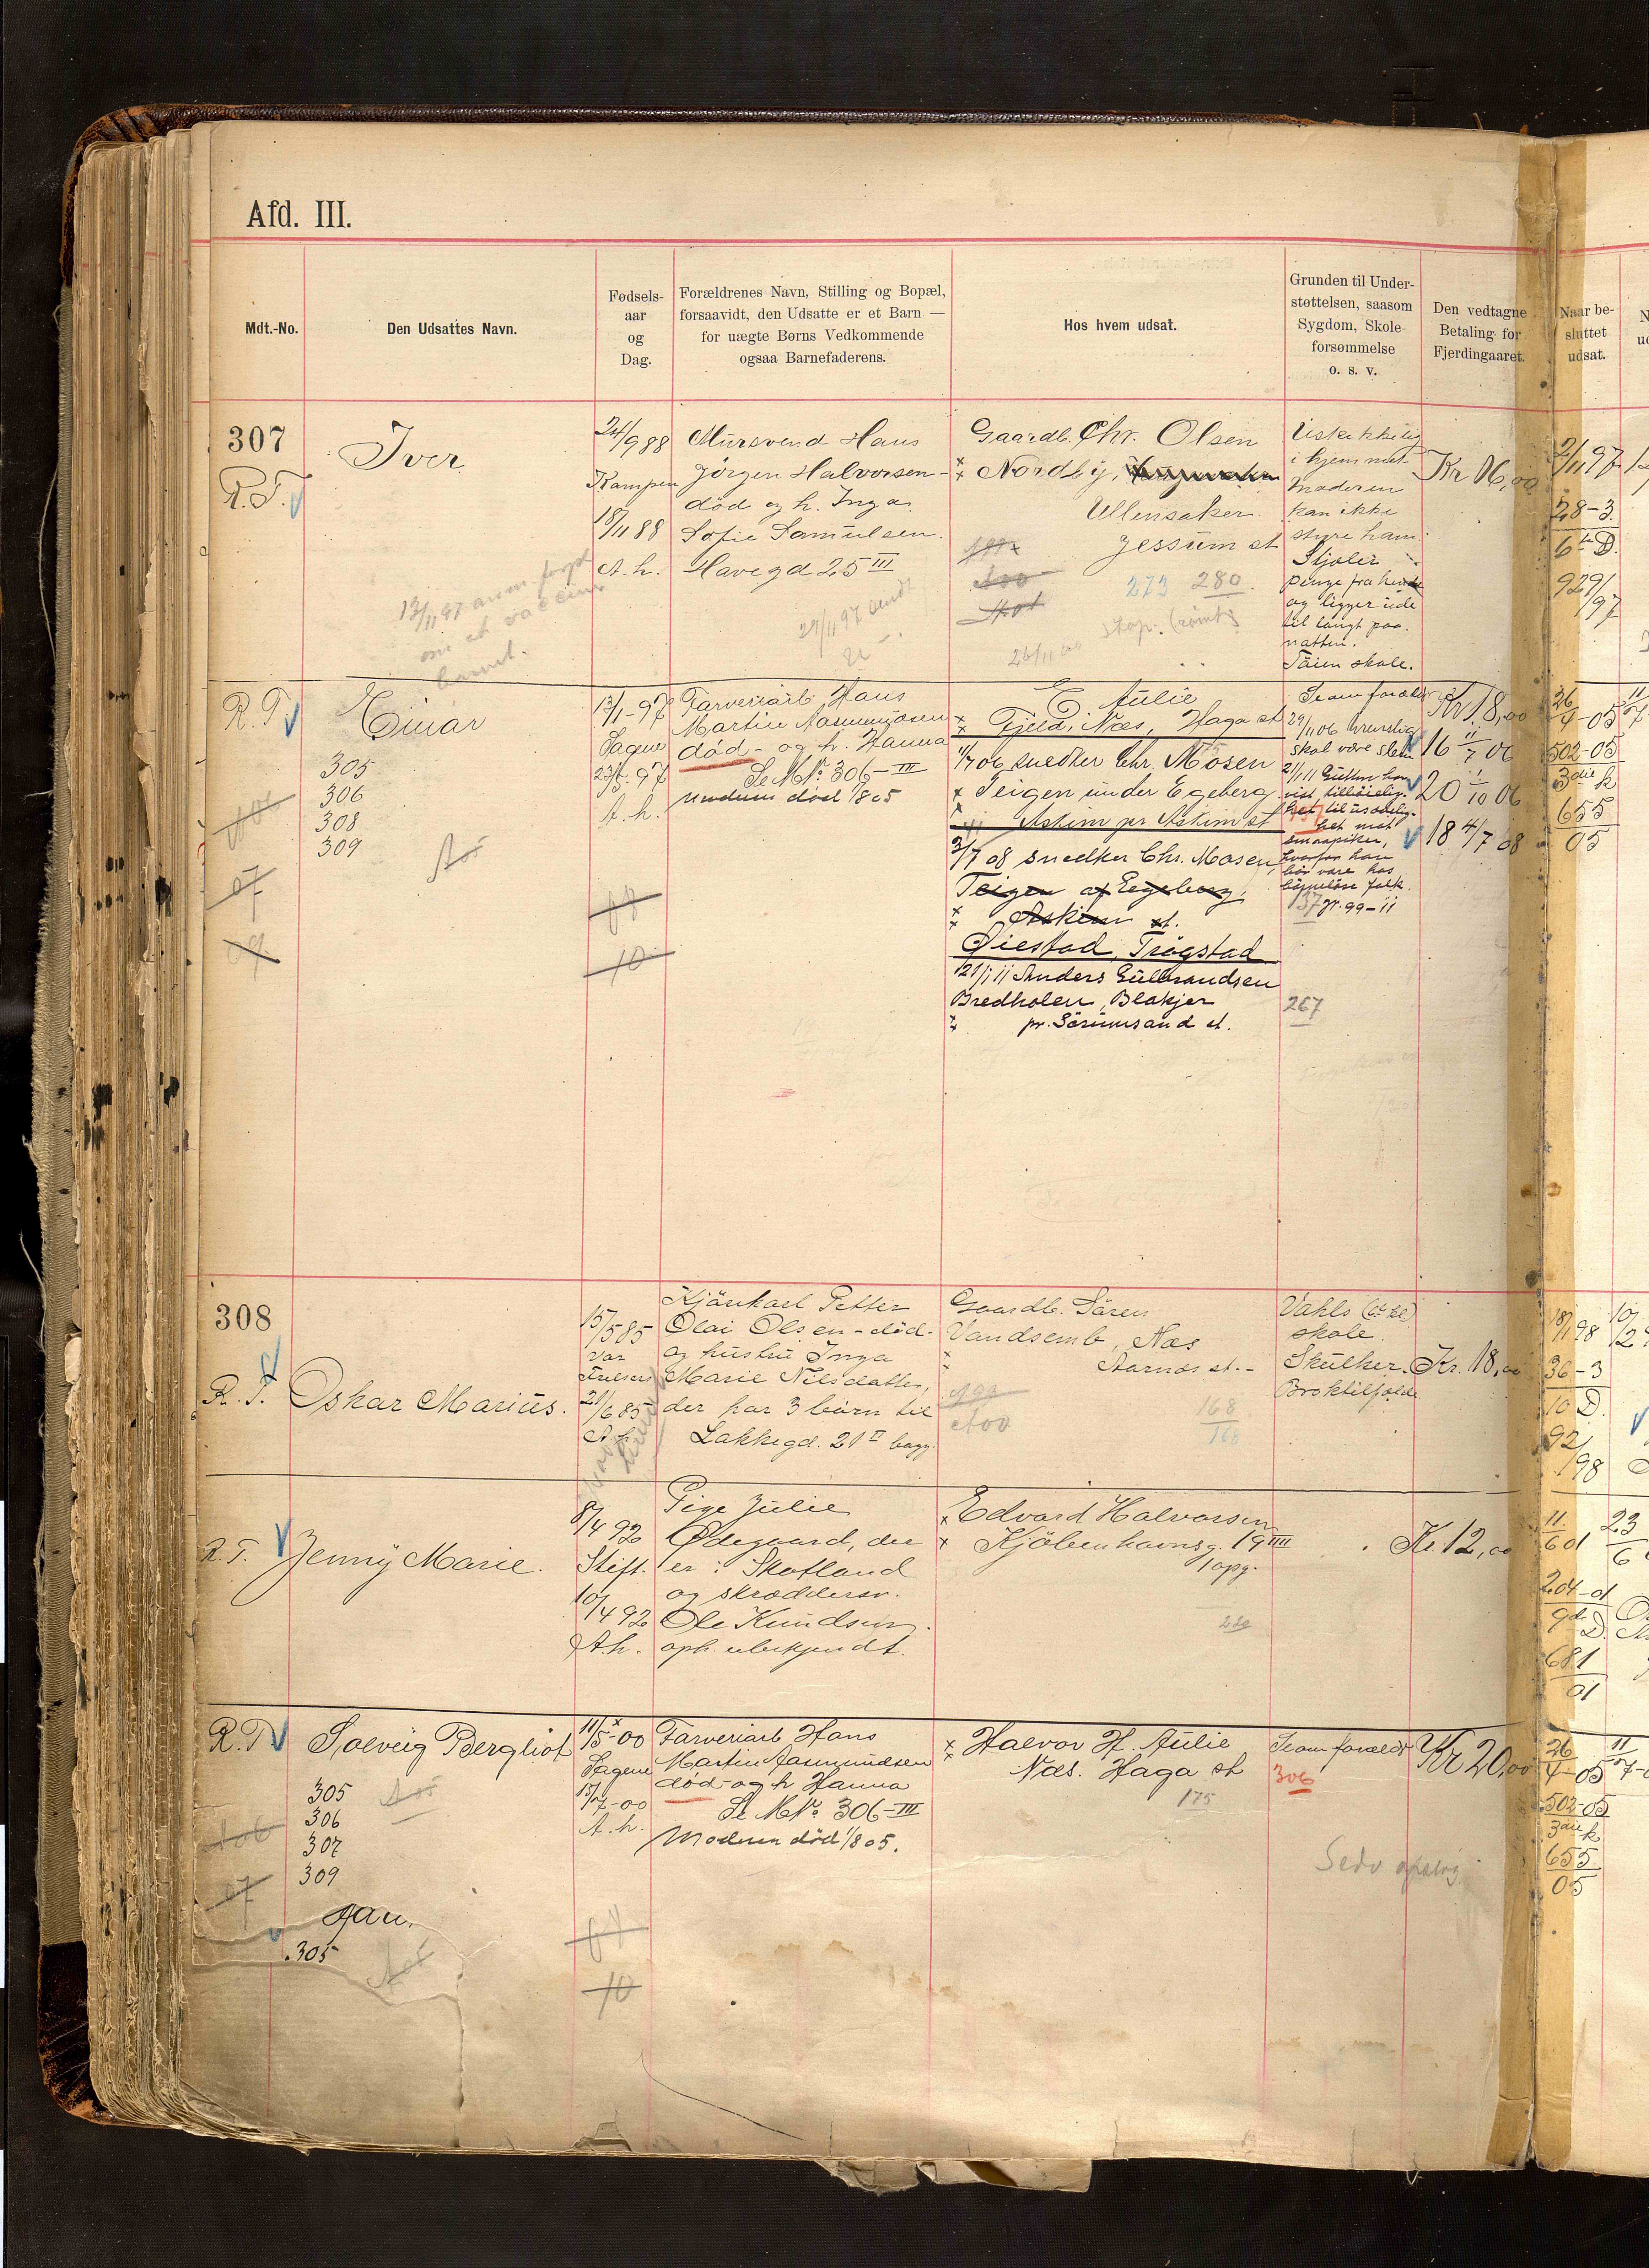 Afd. III.
Mdt.-No.
Den Udsattes Navn.
Fødsels-
aar
og
Dag.
Forældrenes Navn, Stilling og Bopæl,
forsaavidt, den Udsatte er et Barn —
for uægte Børns Vedkommende
ogsaa Barnefaderens.
Hos hvem udsat.
Grunden til Under-
støttelsen, saasom
Sygdom, Skole-
forsømmelse
o. s. v.
Den vedtagne
Betaling for
Fjerdingaaret.
Naar be-
sluttet
udsat.
307
R.T.
Iver
24/9 88
Kampen
18/11 88
A. h.
Mursvend Hans
Jörgen Halvorsen -
död og h. Inga
Sofie Samuelsen.
Havegd 25 III
Gaardb. Chr. Olsen
Nordby,
Ullensaker
Jessum st
273 280.
Uskikkelig
i hjemmet.
Moderen
kan ikke
styre ham.
Stjæler
penge fra hende
og ligger ude
til langt paa
natten.
Töien skole.
Kr 16,00
2/11 97
28-3
6te D.
929/97
R.T.
Einar
305
306
308
309
13/1-97
Sagene
23/5-97
A. h.
Farveriarb Hans
Martin Aasmundsen
död - og h. Hanna
Se M№ 306-III
Moderen död 1/8 05
E Aulie
Fjeld, Næs, Haga st
1/7 06 snedker Chr. Mosen
Teigen under Egeberg
Askim pr Askim st
3/7 08 snedker Chr. Mosen,
Teigen af Egeberg,
Askim st.
Öiestad, Trögstad
21/1 11 Anders Gulbrandsen
Bredholen, Blakjer
pr. Sörumsand st.
29/11 06
skal være slem
21/1 11 Gutten har
vist tilböielig-
het til usædelig-
het mot
smaapiker,
hvorfor han
bör være hos
barnelöse folk.
137 jr. 99-11
267
Kr 18,00
16 11/7 06
20 1/10 06
18 4/7 08
26/4-05
502-05
3die k
655
05
308
R. T.
Oskar Marius.
15/5 85
Vor
Frelsers
21/6 85
A. h.
Petter
Olai Olsen - död -
og hustru Inga
Marie Nilsdatter,
der har 3 börn til
Lakkegd. 21 II bagg.
Gaardb. Sören
Vandsemb, Næs
Aarnæs st. -
168
168
Vahls
skole.
Skulker.
Broktilfælde
Kr. 18,00
18/1 98
36-3
10 D.
92/98
R. T.
Jenny Marie.
8/4 92
Stift.
10/4 92
A. h.
Pige Julie
Ödegaard, der
er i Skotland
og skræddersv.
Ole Knudsen.
oph. ubekjendt.
Edvard Halvorsen
Kjöbenhavnsg. 19 III
1 opg.
220
Kr. 12,00
204-01
681
01
R.T.
Solveig Bergliot
305
306
307
309
Jan.
305
11/5-00
Sagene
15/7-00
A. h.
Farveriarb Hans
Martin Aasmundsen
död - og h Hanna
Se M№ 306-III
Moderen död 1/8 05.
Halvor H. Aulie
Næs. Haga st
175
306
Kr 20,00
26/4-05
502-05
3die k
655
05